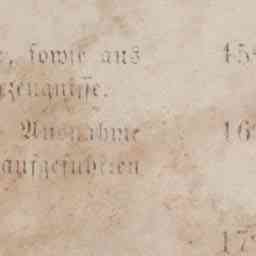 , sowie aus 15
zeugnisse.
Ausnahme 16
aufgeführten
17